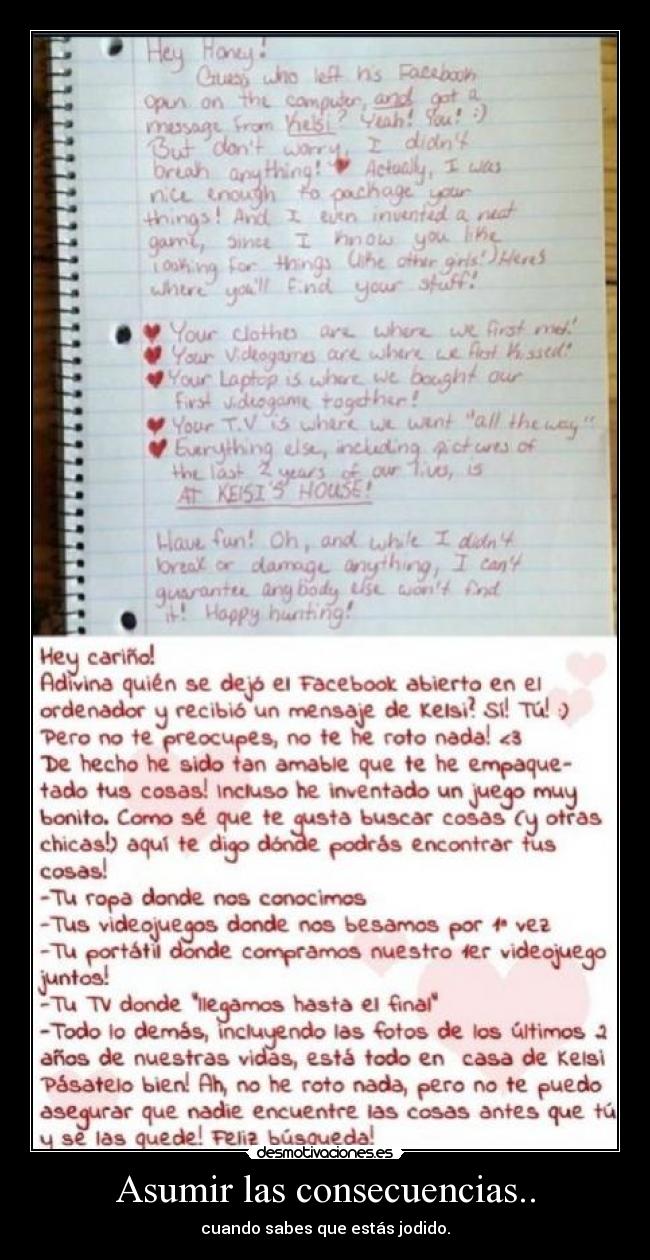 Hey Honey!
Guess who left his Facebook
open on the computer, and got a
message from Kelsi? Yeah! You! :)
But don't worry, I didn't
break anything! ♥ Actually, I was
nice enough to package your
things! And I even invented a neat
game, since I know you like
looking for things (like other girls!) Here's
where you'll find your stuff!
♥ Your clothes are where we first met!
♥ Your Videogames are where we first kissed!
♥ Your Laptop is where we bought our
first videogame together!
♥ Your T.V is where we went "all the way"
♥ Everything else, including pictures of
the last 2 years of our lives, is
AT KELSI'S HOUSE!
Have fun! Oh, and while I didn't
break or damage anything, I can't
guarantee anybody else won't find
it! Happy hunting!
Hey cariño!
Adivina quién se dejó el Facebook abierto en el
ordenador y recibió un mensaje de Kelsi? Sí! Tú! :)
Pero no te preocupes, no te he roto nada! <3
De hecho he sido tan amable que te he empaque-
tado tus cosas! Incluso he inventado un juego muy
bonito. Como sé que te gusta buscar cosas (y otras
chicas!) aquí te digo dónde podrás encontrar tus
cosas!
-Tu ropa donde nos conocimos
-Tus videojuegos donde nos besamos por 1ª vez
-Tu portátil donde compramos nuestro 1er videojuego
juntos!
-Tu TV donde "llegamos hasta el final"
-Todo lo demás, incluyendo las fotos de los últimos 2
años de nuestras vidas, está todo en casa de Kelsi
Pásatelo bien! Ah, no he roto nada, pero no te puedo
asegurar que nadie encuentre las cosas antes que tú
y se las quede! Feliz búsqueda!
desmotivaciones.es
Asumir las consecuencias..
cuando sabes que estás jodido.